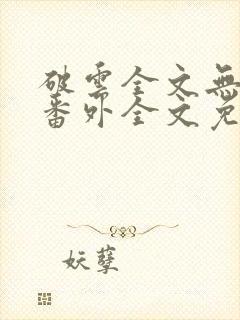 破雲全文無
番外全文免
妖孽